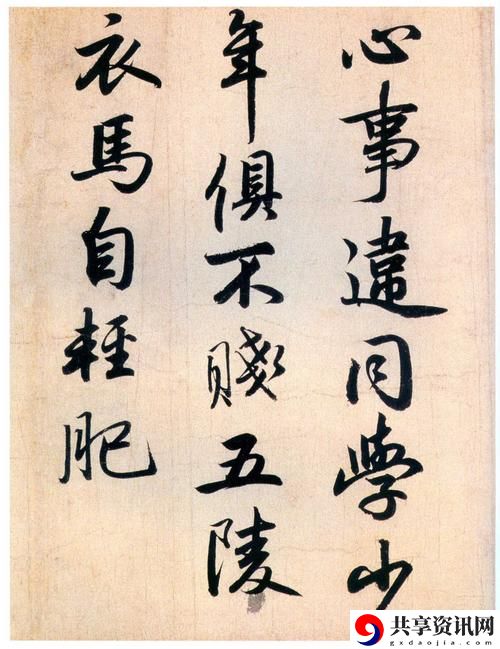 心事違同學少
年俱不賤五陵
衣馬自輕肥
共享资讯网
gxdaojia.com